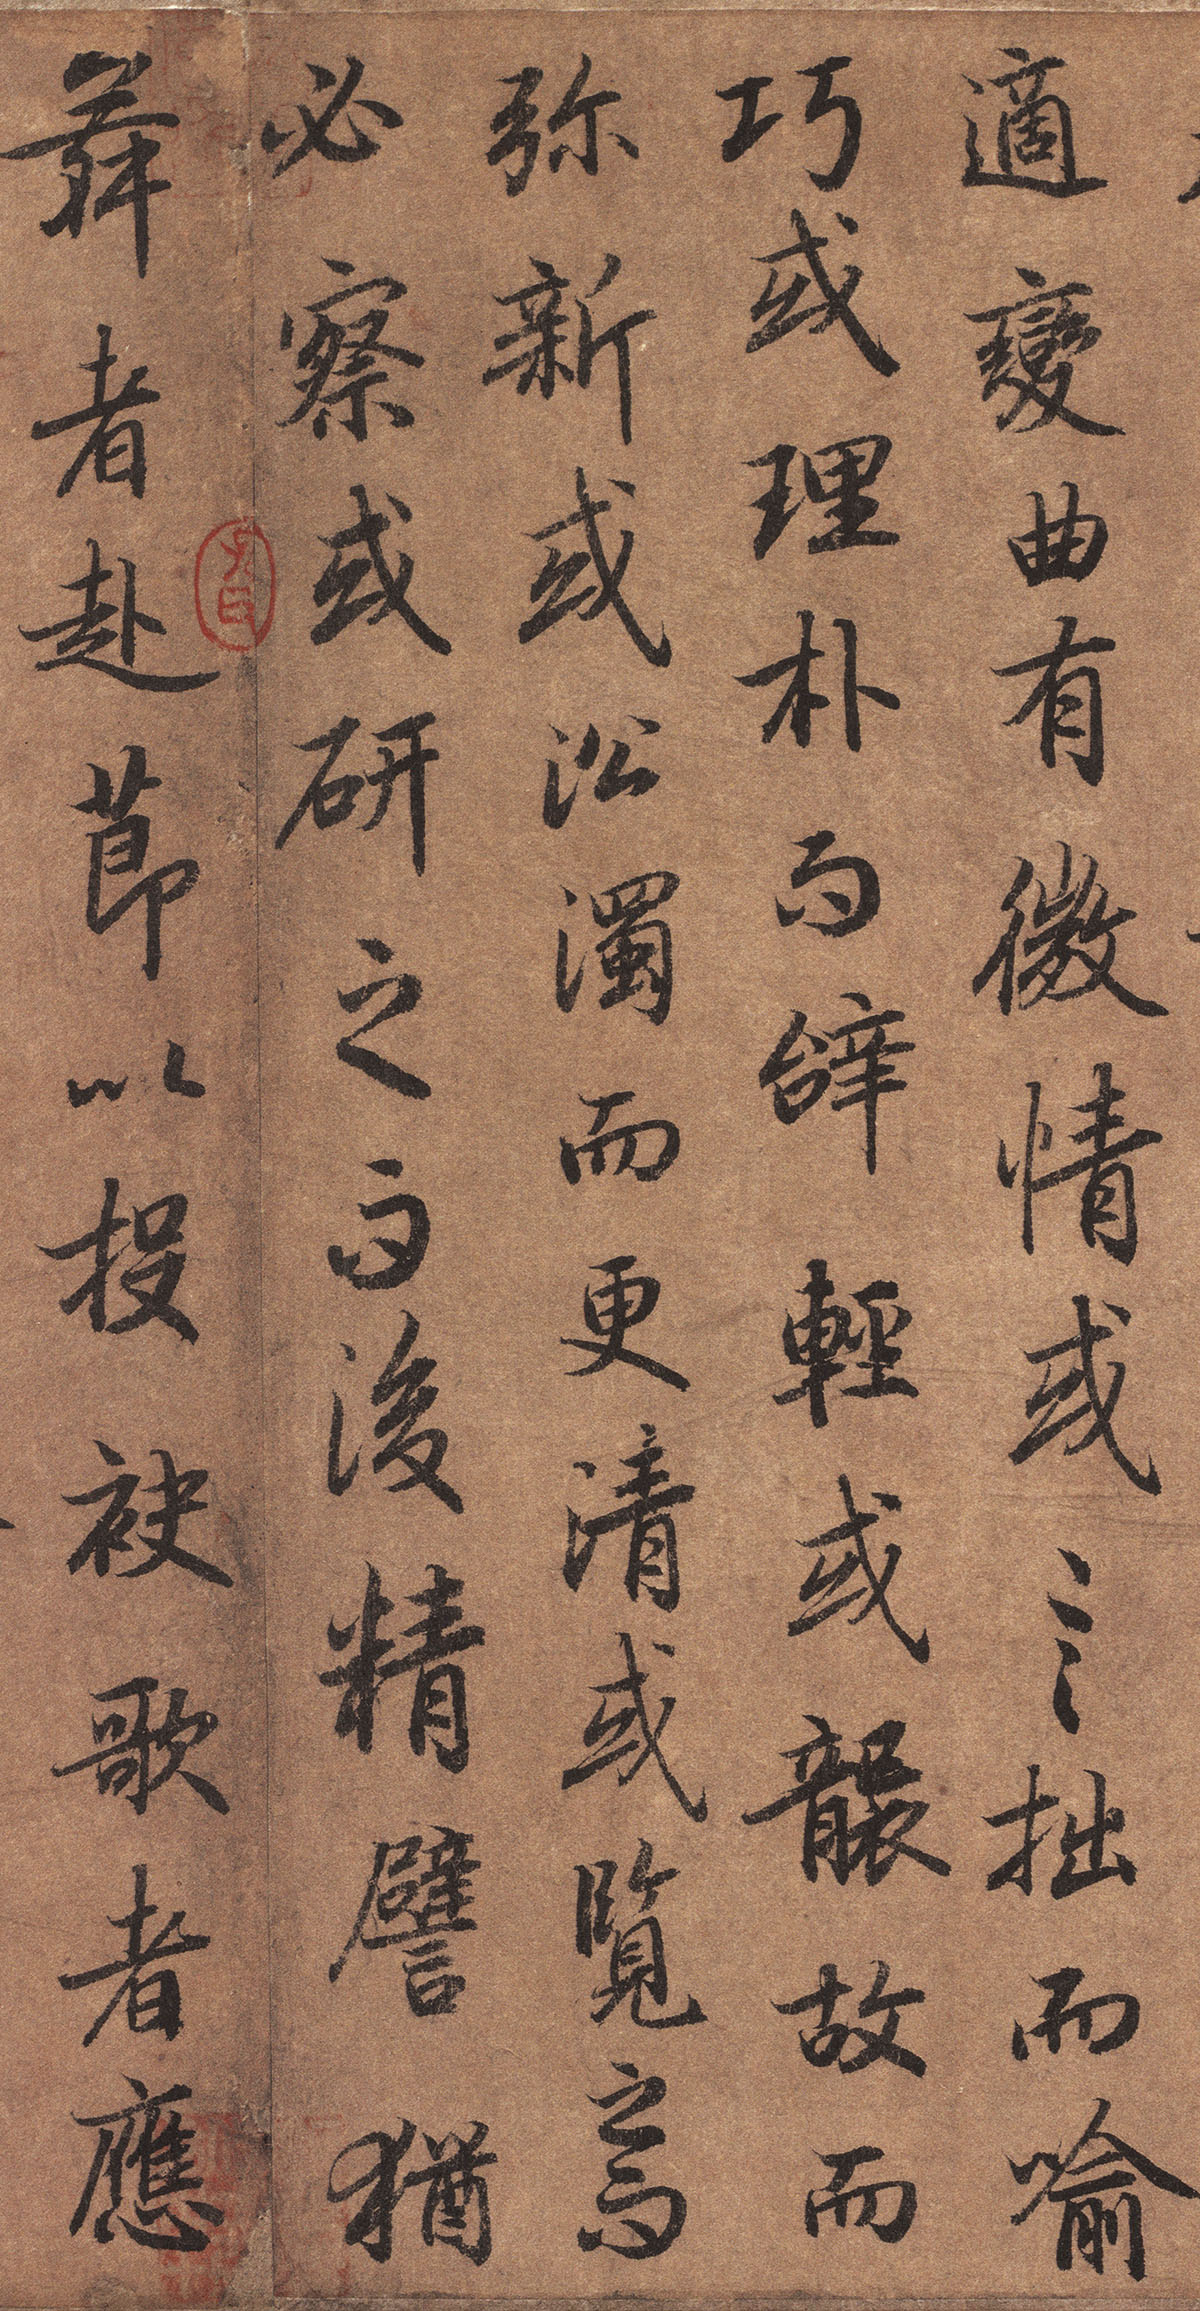 適變曲有微情或言拙而喻
巧或理朴而辝輕或襲故而
弥新或沿濁而更清或覽之而
必察或研之而後精譬猶
舞者赴莭以投袂歌者應